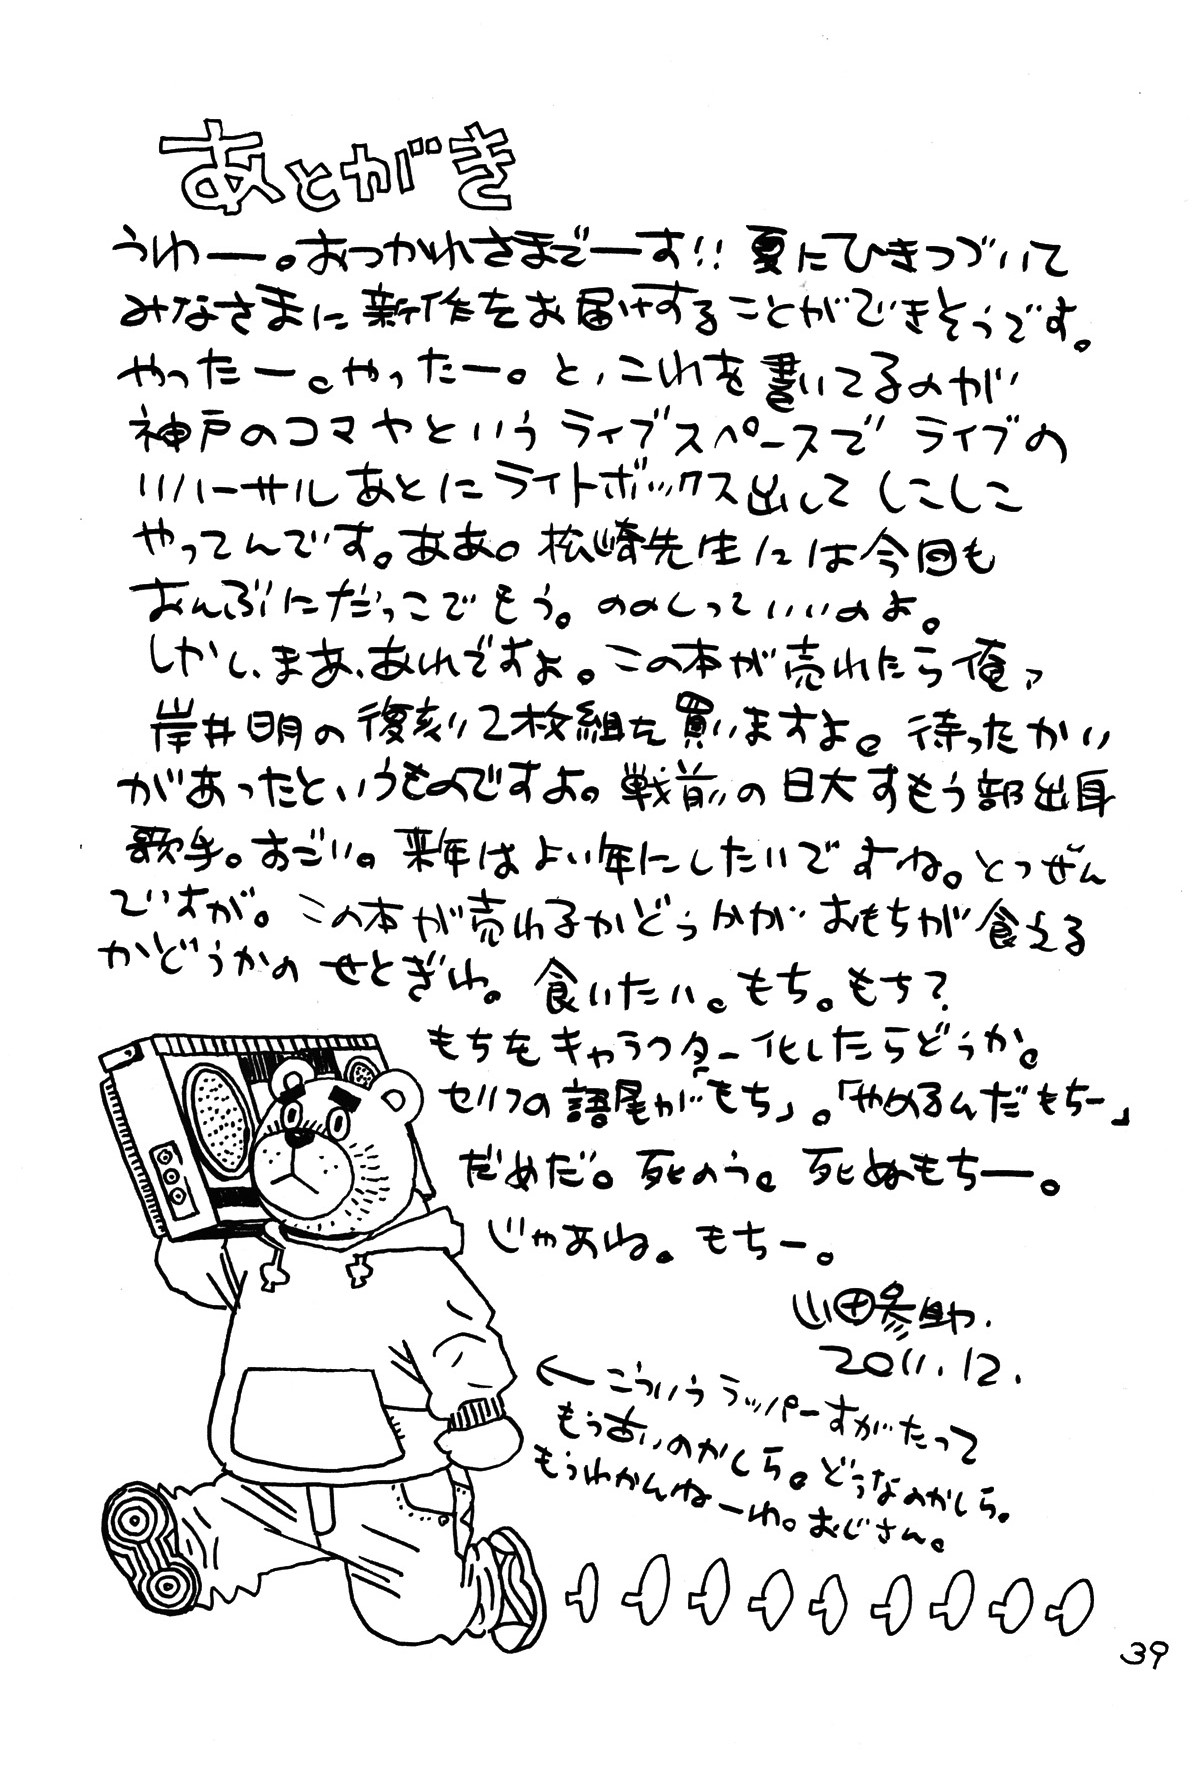 あとがき
うわー。おつかれさまでーす!! 夏にひきつづいて
みなさまに新作をお届けすることができそうです。
やったー。やったー。と、これを書いてるのが
神戸のコマヤというライブスペースでライブの
リハーサルあとにライトボックス出してしこしこ
やってんです。ああ。松崎先生には今回も
おんぶにだっこでもう。ののしっていいのよ。
しかし、まあ、あれですよ。この本が売れたら俺ァ
岸井明の復刻2枚組を買いますよ。待ったかい
があったというものですよ。戦前の日大すもう部出身
歌手。すごい。来年はよい年にしたいですね。とつぜん
ですが。この本が売れるかどうかがおもちが食える
かどうかのせとぎわ。食いたい。もち。もち?
もちをキャラクター化したらどうか。
セリフの語尾が「もち」。「やめるんだもちー」
だめだ。死のう。死ぬもちー。
じゃあね。もちー。
山田参助.
2011.12.
←こういうラッパーすがたって
もう古いのかしら。どうなのかしら。
もうわかんねーわ。おじさん。
39